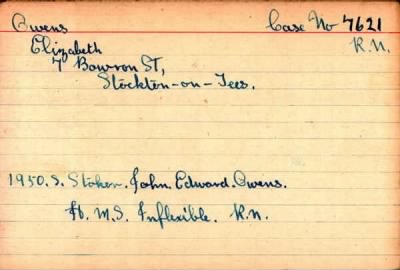 Owens Case No 7621
Elizabeth R.N.
7 Bowron St,
Stockton-on-Tees.
1950.S. Stoker. John Edward. Owens.
H. M. S. Inflexible. R.N.